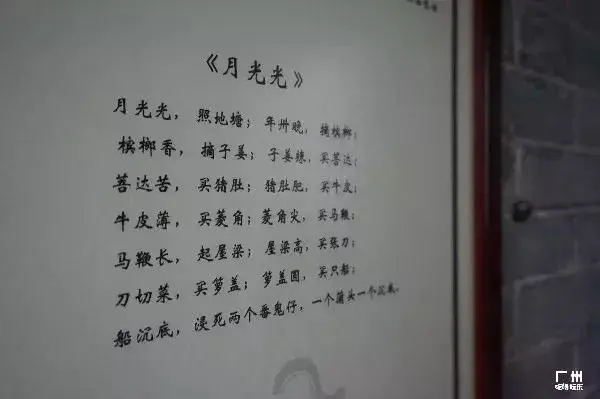 《月光光》
月光光，照地塘；年卅晚，摘槟榔；
槟榔香，摘子姜；子姜辣，买菩达；
菩达苦，买猪肚；猪肚肥，买牛皮；
牛皮薄，买菱角；菱角尖，买马鞭；
马鞭长，起屋梁；屋梁高，买张刀；
刀切菜，买箩盖；箩盖圆，买只船；
船沉底，浸死两个番鬼仔，一个蒲头一个沉底。
广州